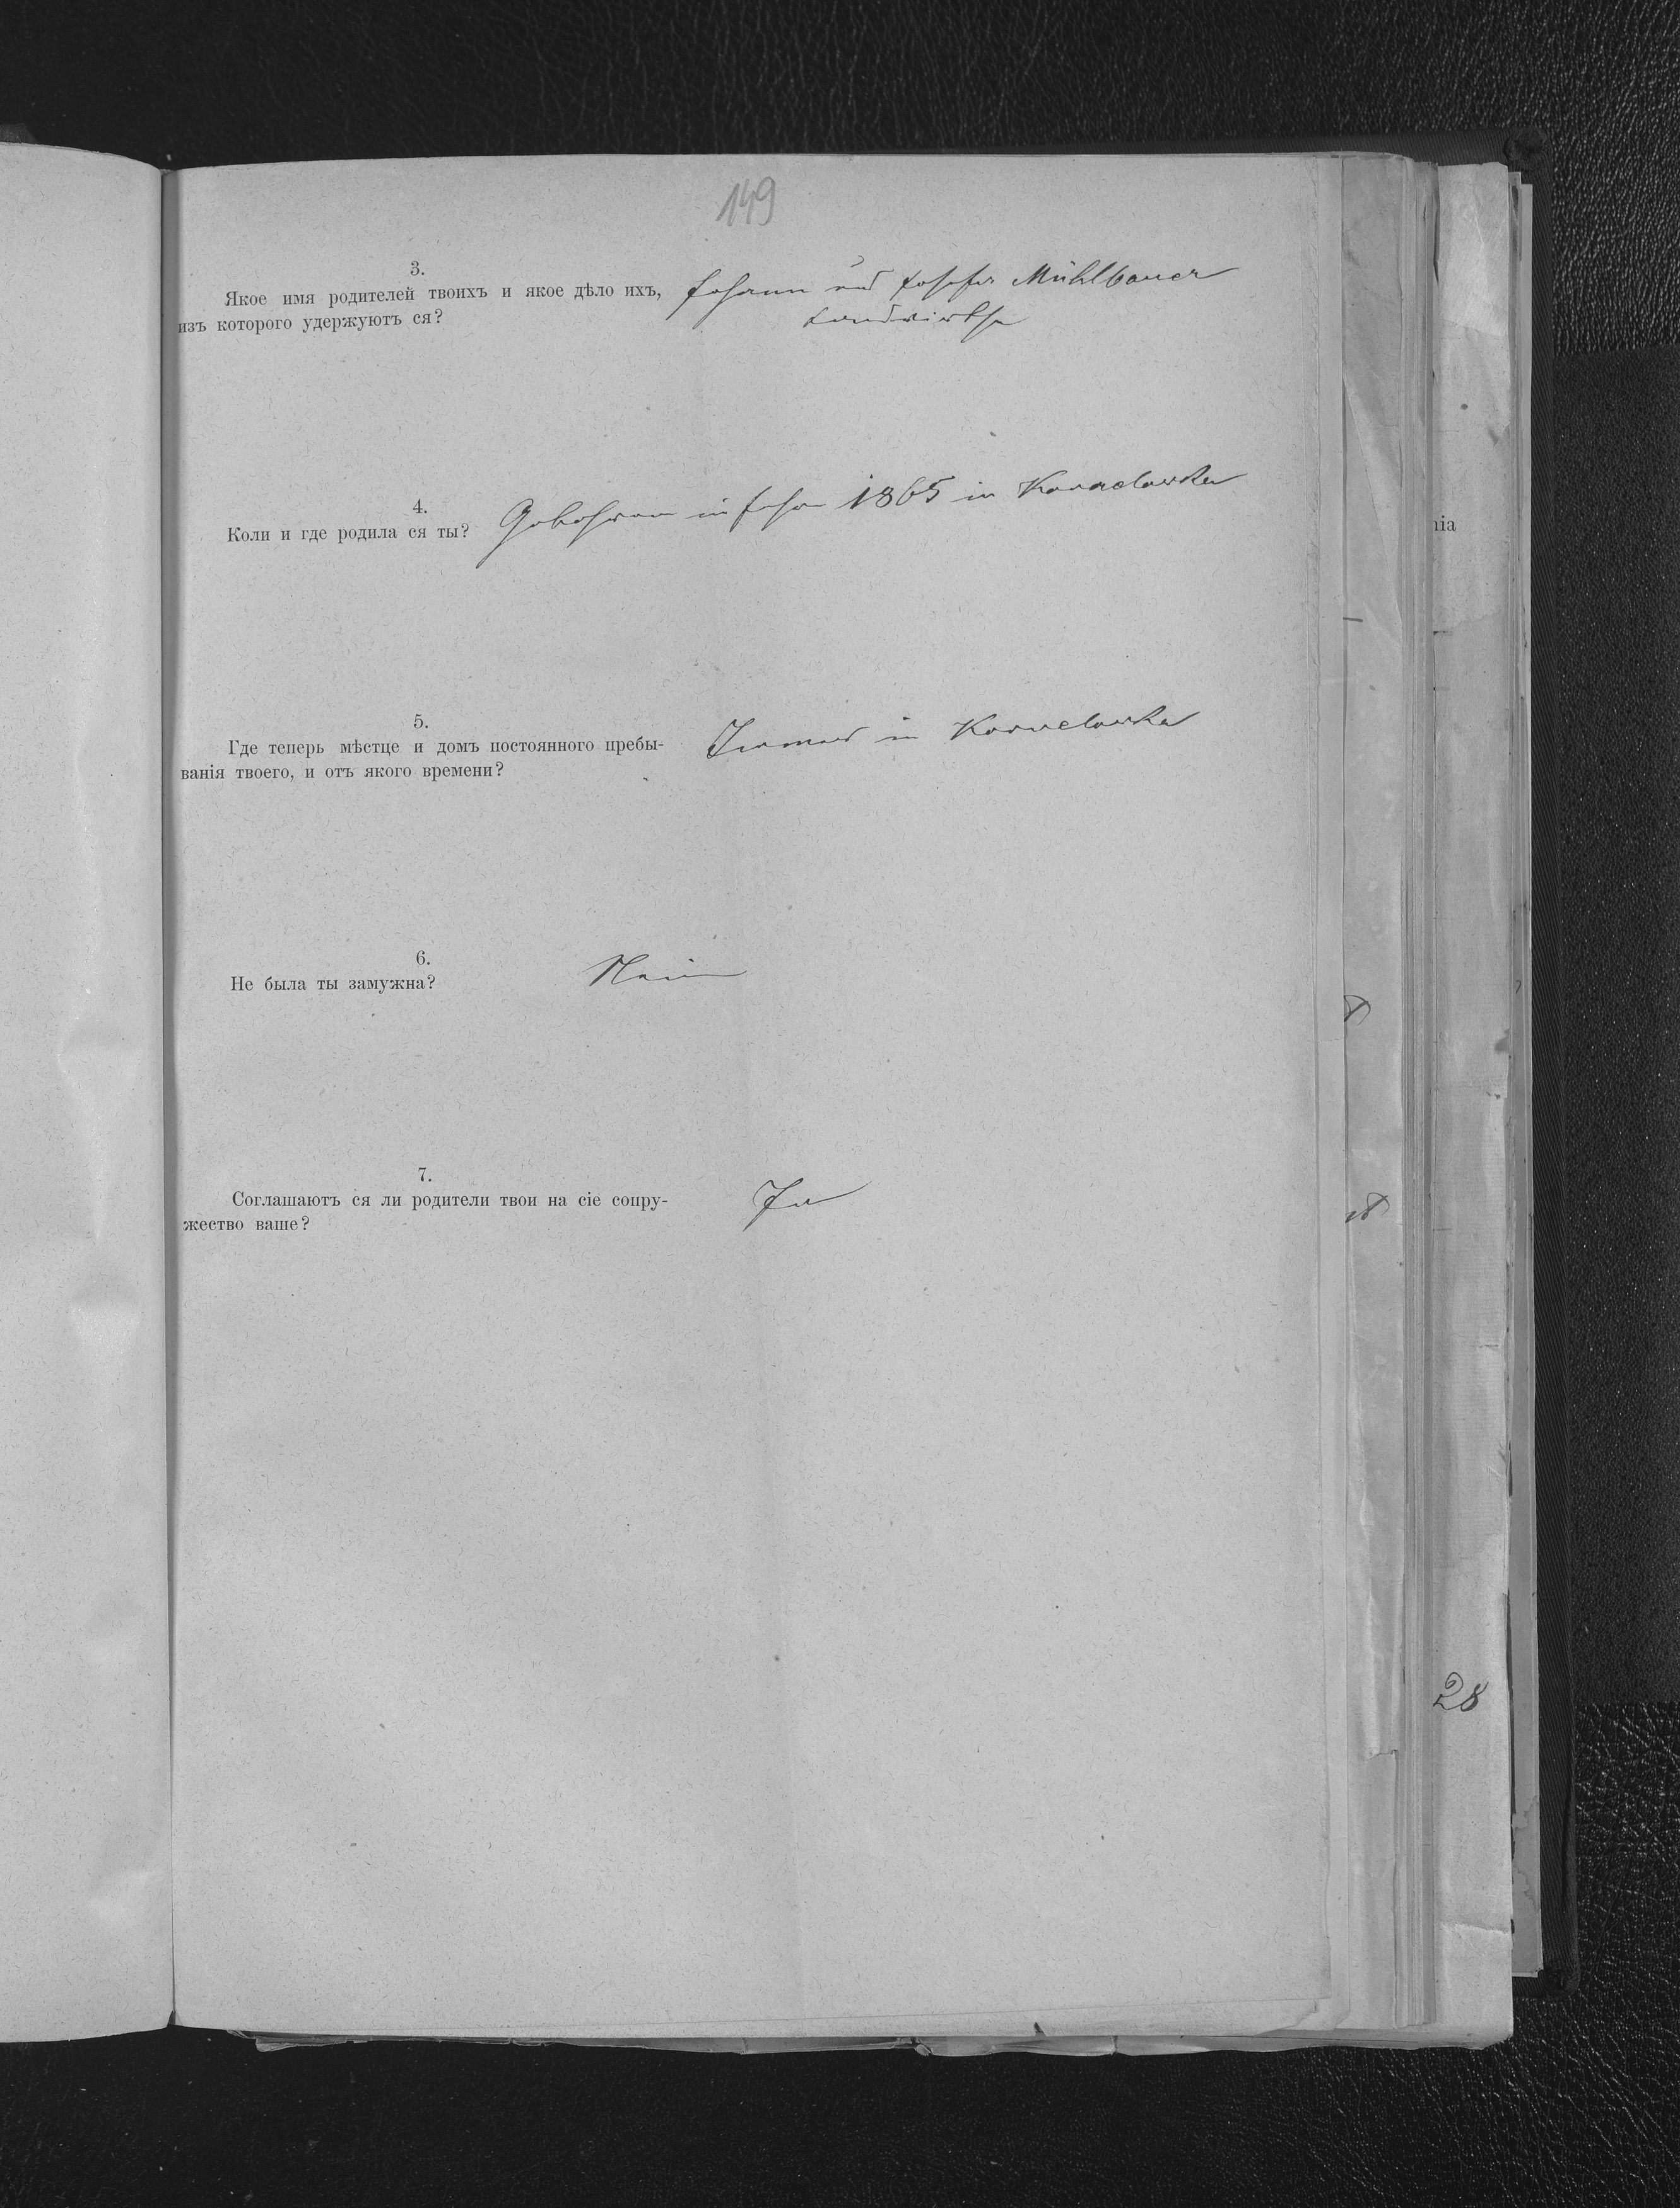 149
3.
Якое имя родителей твоихъ и якое дѣло ихъ,
изъ которого удержуютъ ся?
Johann und Josefa Mühlbauer
Landwirthe
4.
Коли и где родила ся ты?
Geboren im Jahre 1865 in Kornelowka
5.
Где теперь мѣстце и домъ постоянного пребы-
ванія твоего, и отъ якого времени?
in Kornelowka
6.
Не была ты замужна?
Nein
7.
Соглашаютъ ся ли родители твои на сіе супру-
жество ваше?
Ja
nia
28